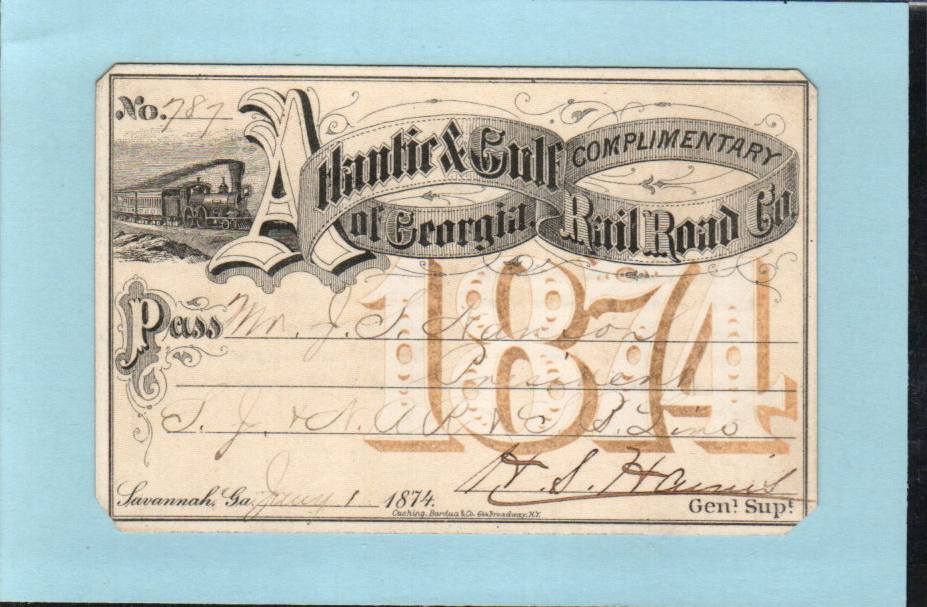 No. 787
Atlantic & Gulf
COMPLIMENTARY
of Georgia Rail Road Co.
1874
Pass Mr. J. S.
President
S. J. & N. A. R. R. & S. B. Line
Savannah, Ga. Jany 1 1874.
H. S. Haines
Cushing, Bardua & Co. 644 Broadway, N.Y.
Genl. Supt.